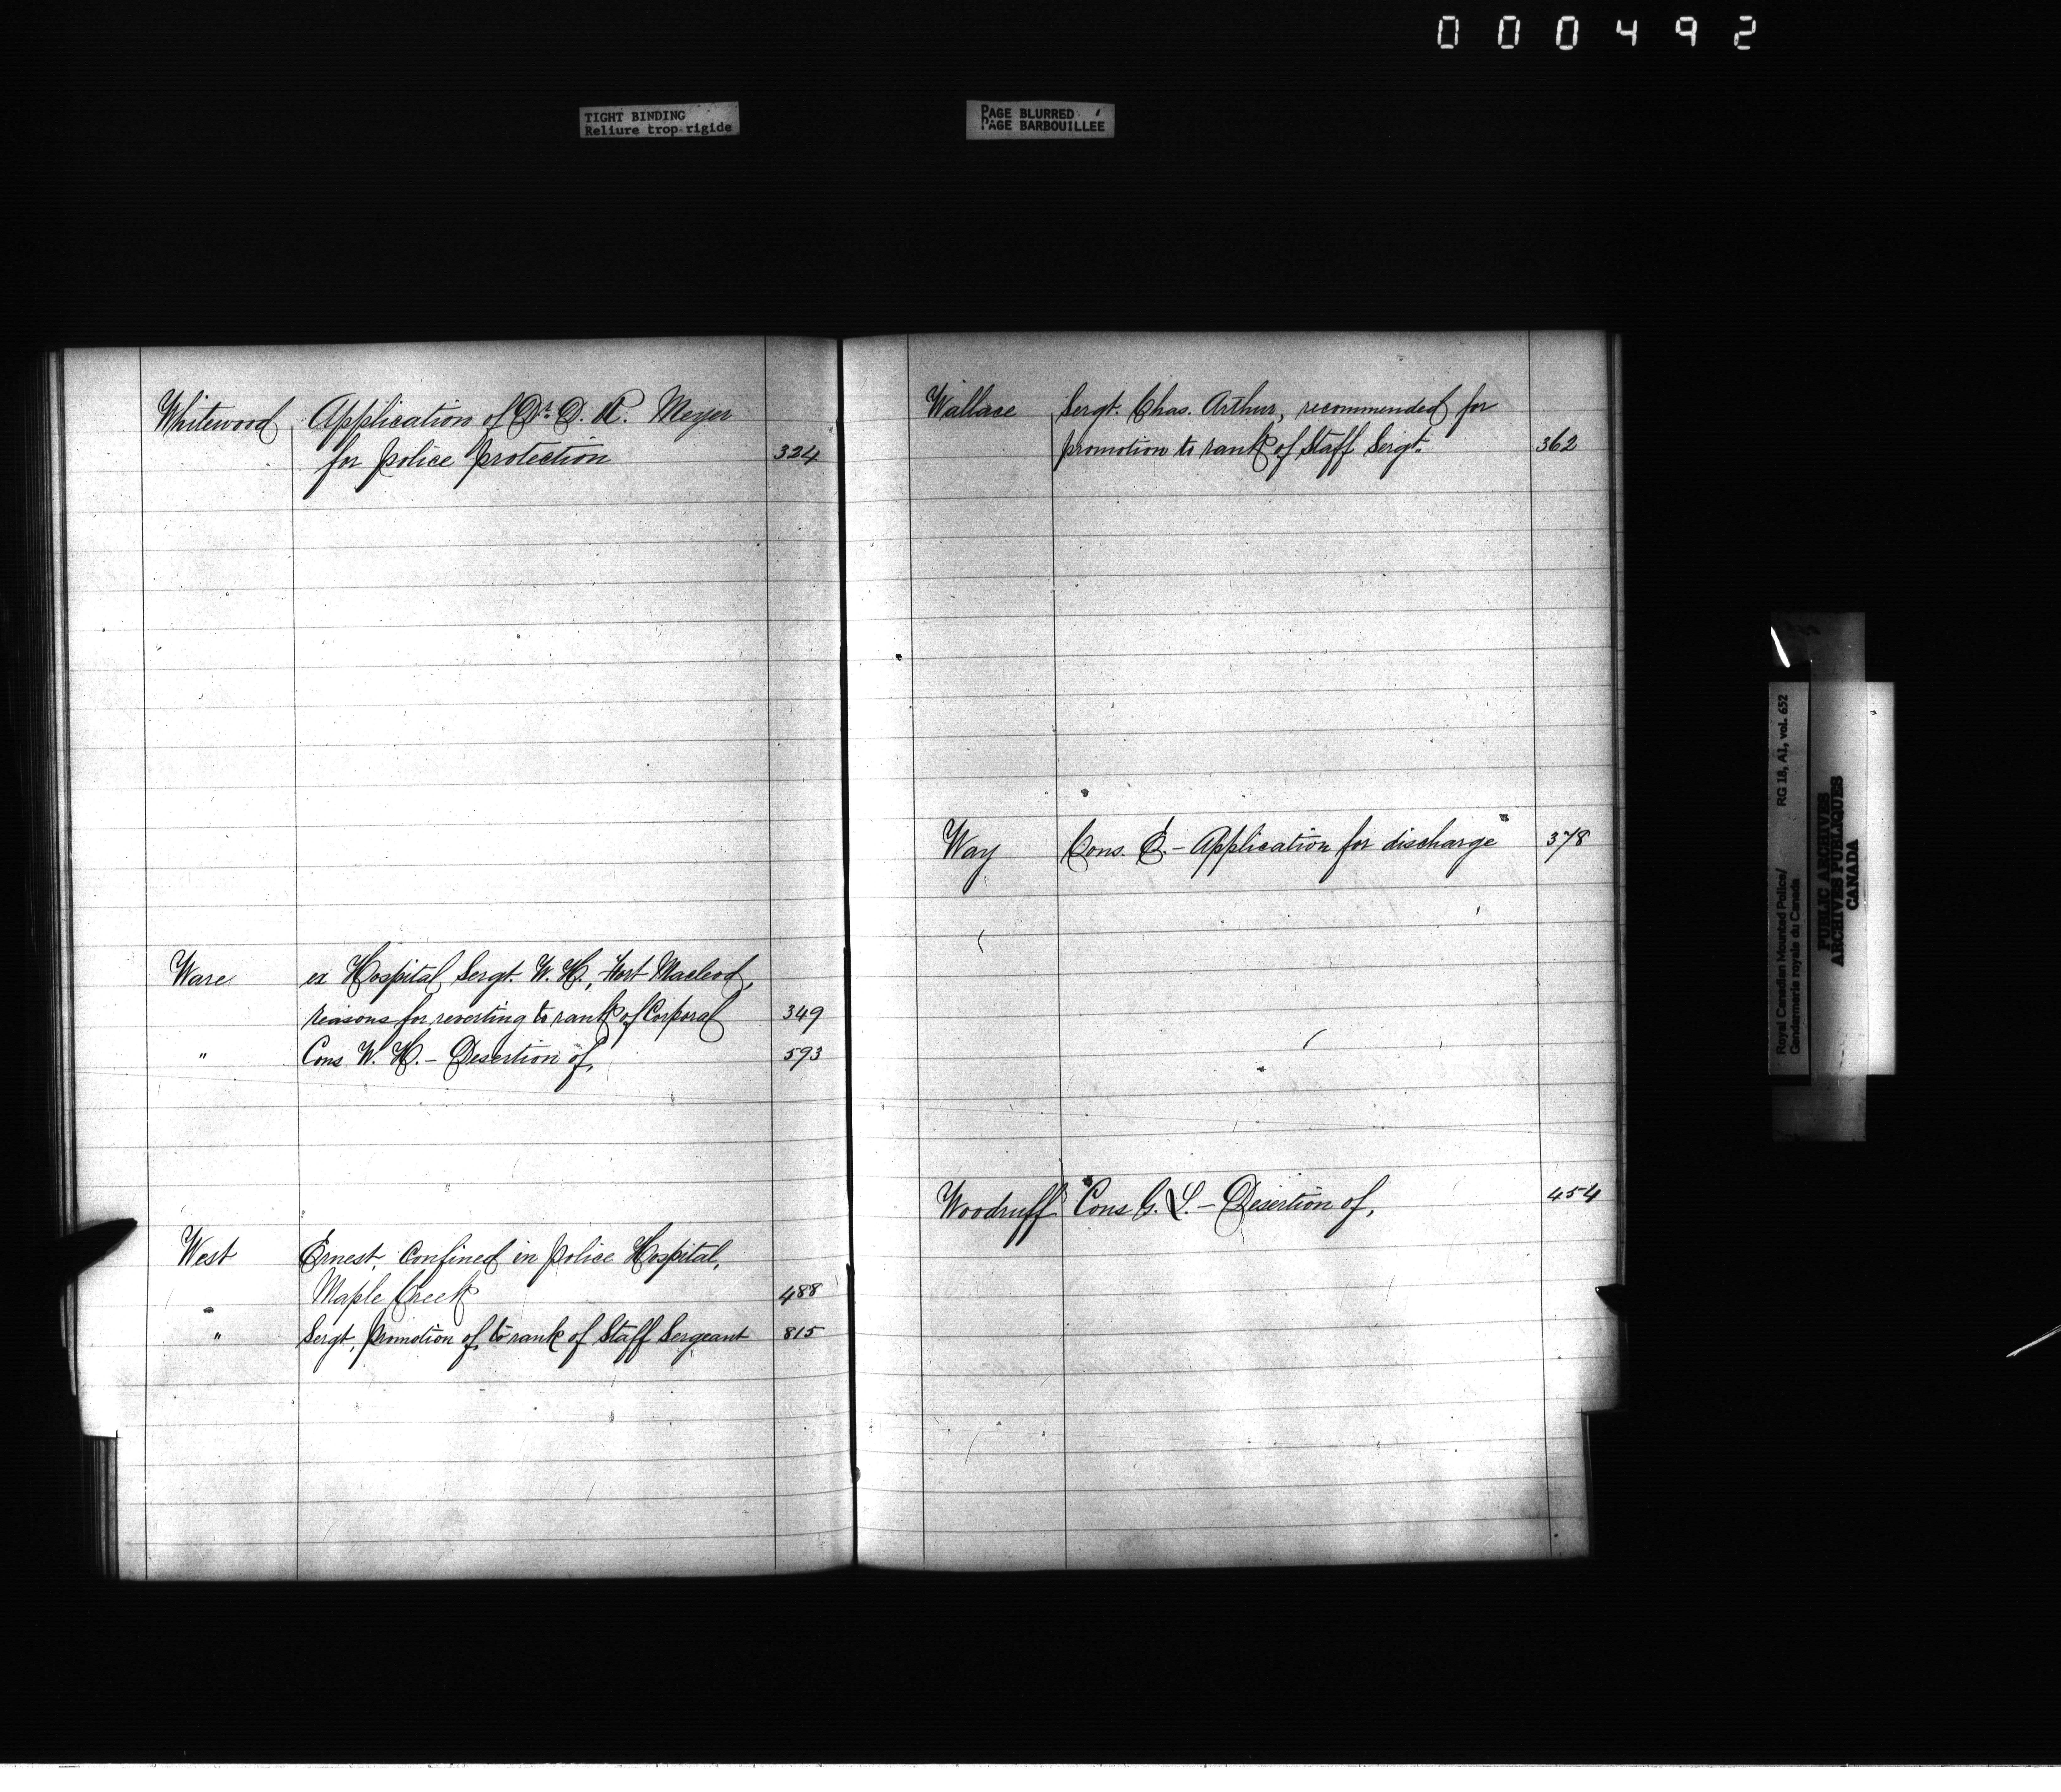 000492
TIGHT BINDING
Reliure trop rigide
PAGE BLURRED
PAGE BARBOUILLEE
Whitewood Application of Dr. D. A. Meyer
for police protection 324
Ware ex Hospital Sergt. W. H., Fort Macleod,
reasons for reverting to rank of Corporal 349
" Cons W. H. - Desertion of, 593
West Ernest, Confined in Police Hospital,
Maple Creek 488
" Sergt, promotion of, to rank of Staff Sergeant 815
Wallace Sergt. Chas. Arthur, recommended for
promotion to rank of Staff Sergt. 362
Way Cons. E. - Application for discharge 378
Woodruff Cons G. L. - Desertion of, 454
Royal Canadian Mounted Police/ RG 18, A1, vol. 652
Gendarmerie royale du Canada
PUBLIC ARCHIVES
ARCHIVES PUBLIQUES
CANADA